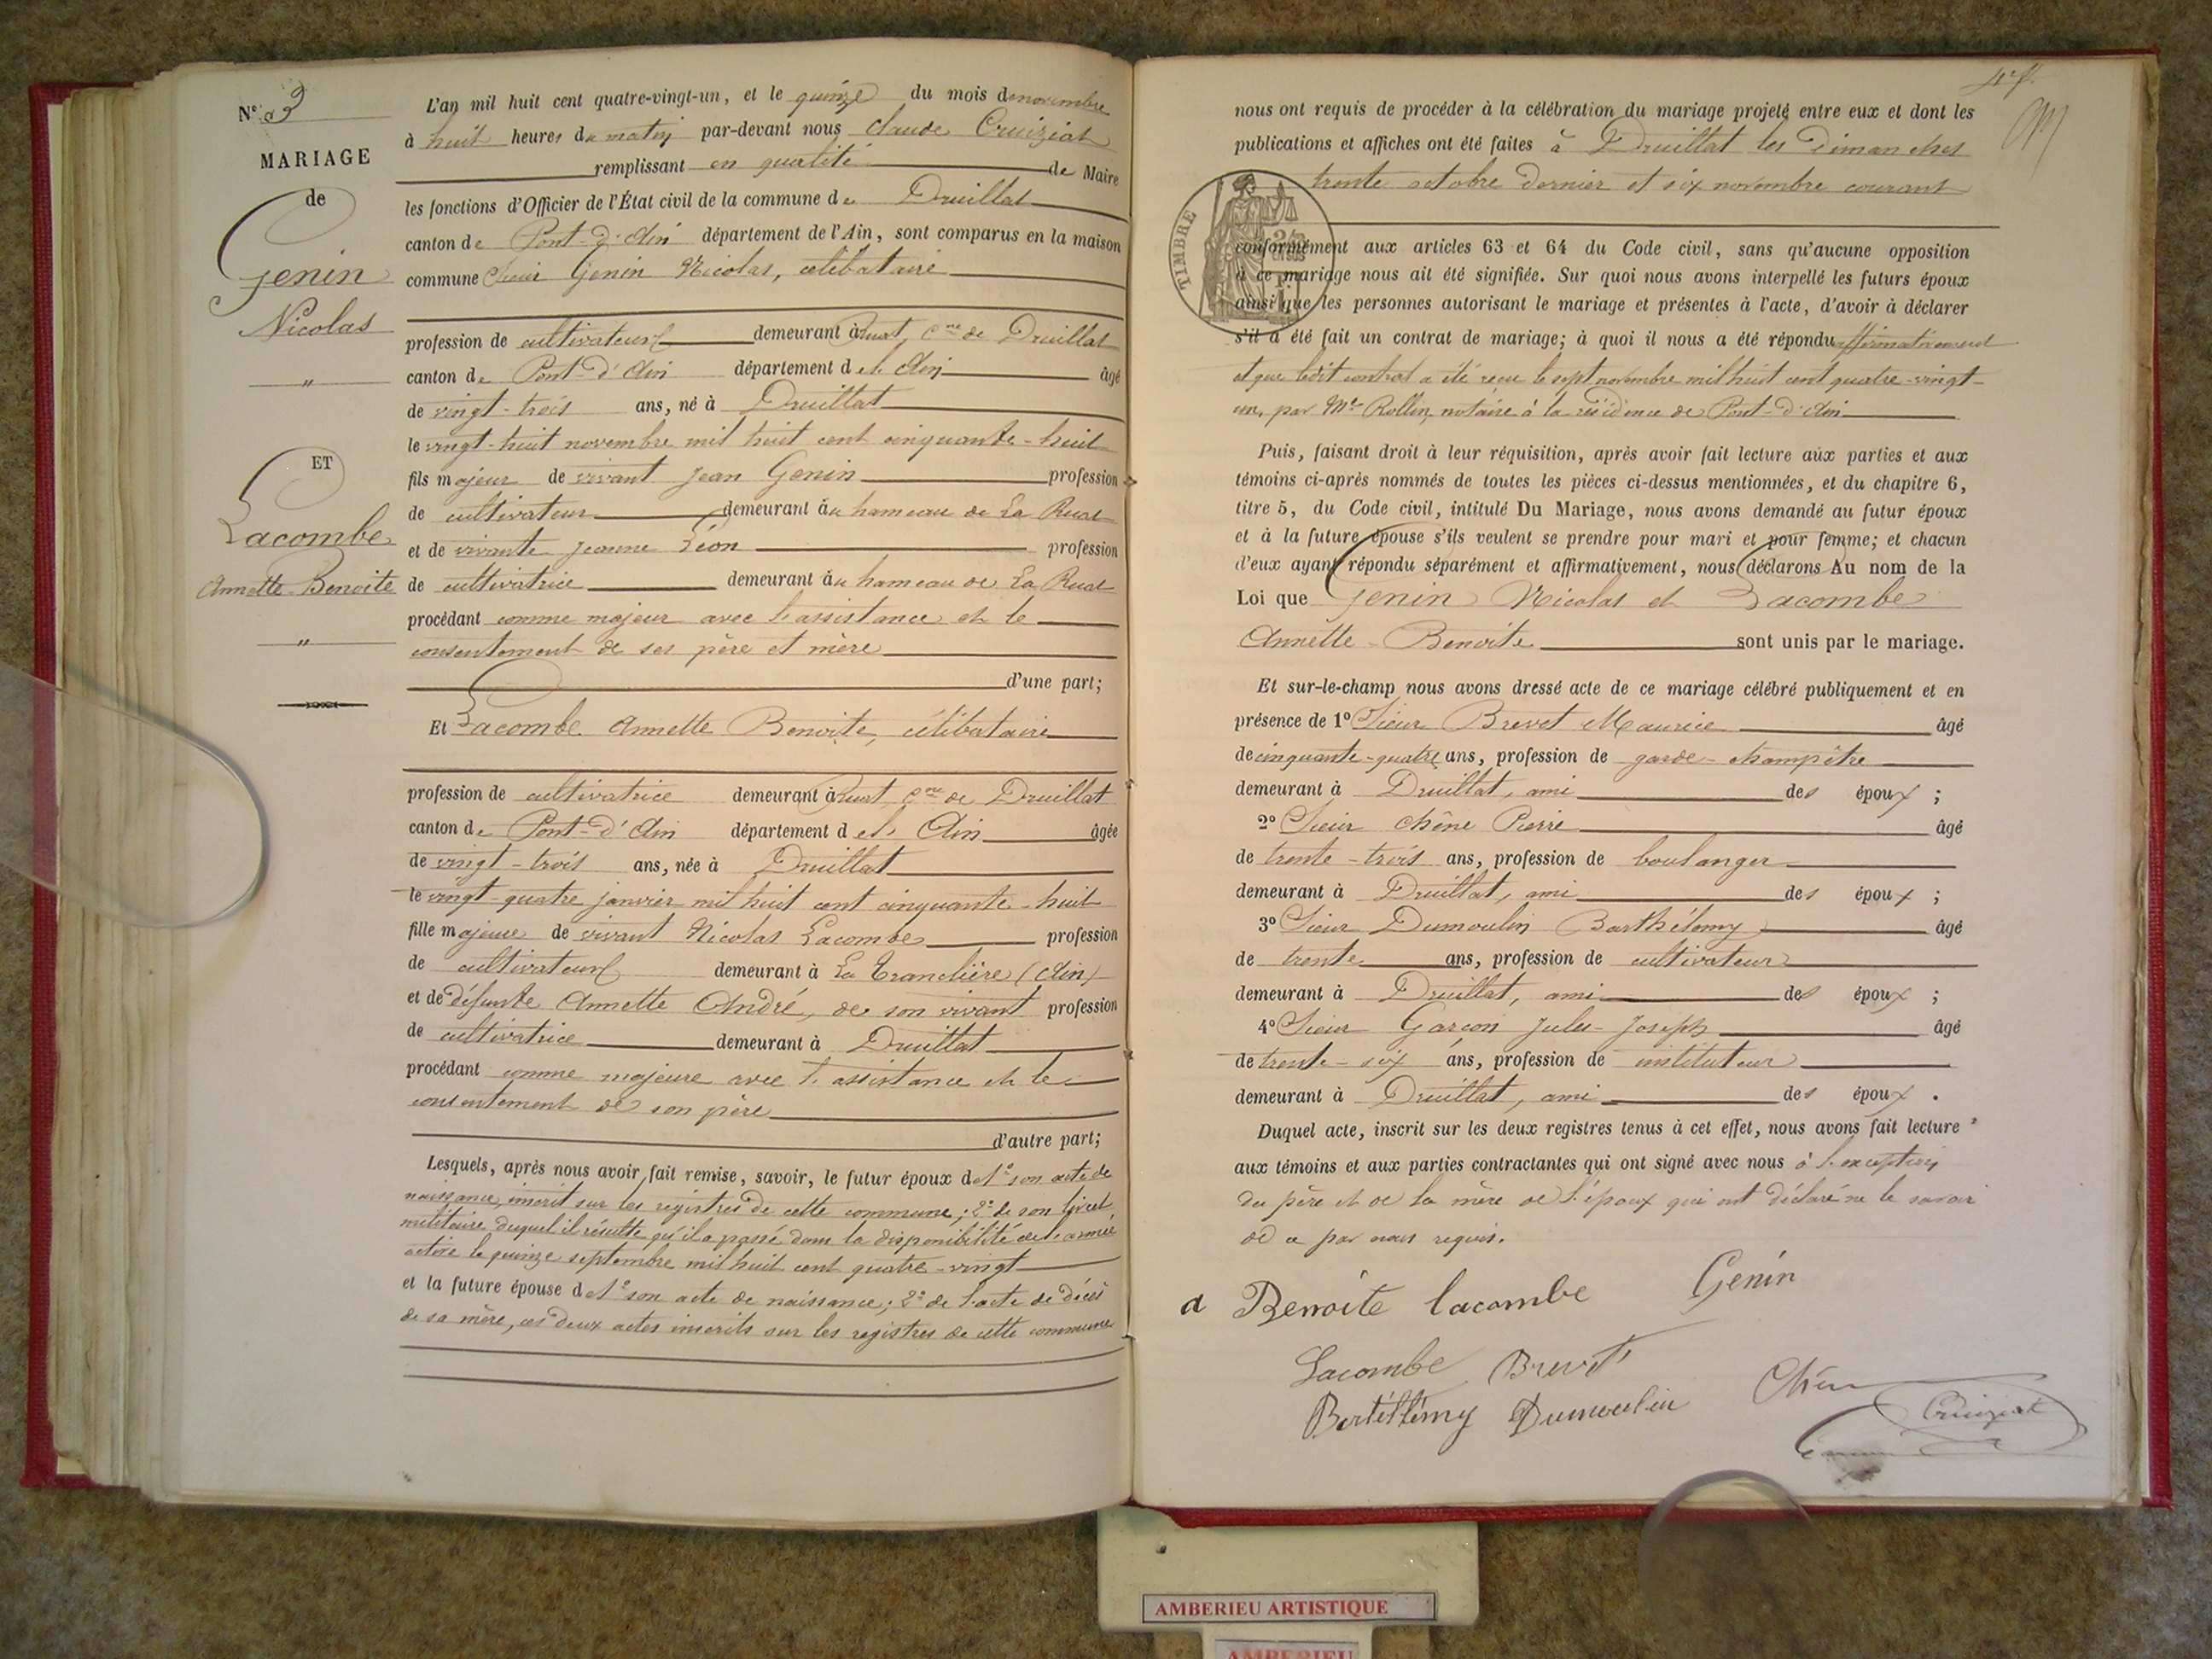 N° 3
MARIAGE
de
Genin
Nicolas
"
ET
Lacombe
Annette Benoite
"
L'an mil huit cent quatre-vingt-un, et le quinze du mois de novembre
à huit heures du matin par-devant nous Claude Cruiziat
remplissant en qualité de Maire
les fonctions d'Officier de l'État civil de la commune de Druillat
canton de Pont-d'Ain département de l'Ain, sont comparus en la maison
commune Sieur Genin Nicolas, célibataire
profession de cultivateur demeurant à Ruat, Cne de Druillat
canton de Pont-d'Ain département de l'Ain âgé
de vingt-trois ans, né à Druillat
le vingt-huit novembre mil huit cent cinquante-huit
fils majeur de vivant Jean Genin profession
de cultivateur demeurant au hameau de La Ruat
et de vivante Jeanne Léon profession
de cultivatrice demeurant au hameau de La Ruat
procédant comme majeur avec l'assistance et le
consentement de ses père et mère
d'une part;
Et Lacombe Annette Benoite, célibataire
profession de cultivatrice demeurant à Ruat, Cne de Druillat
canton de Pont-d'Ain département de l'Ain âgée
de vingt-trois ans, née à Druillat
le vingt-quatre janvier mil huit cent cinquante-huit
fille majeure de vivant Nicolas Lacombe profession
de cultivateur demeurant à La Tranclière (Ain)
et de défunte Annette André, de son vivant profession
de cultivatrice demeurant à Druillat
procédant comme majeure avec l'assistance et le
consentement de son père
d'autre part;
Lesquels, après nous avoir fait remise, savoir, le futur époux de 1° son acte de
naissance, inscrit sur les registres de cette commune; 2° de son livret
militaire duquel il résulte qu'il a passé dans la disponibilité de l'armée
active le quinze septembre mil huit cent quatre-vingt
et la future épouse de 1° son acte de naissance; 2° de l'acte de décès
de sa mère, ces deux actes inscrits sur les registres de cette commune
nous ont requis de procéder à la célébration du mariage projeté entre eux et dont les
publications et affiches ont été faites à Druillat les dimanches
trente octobre dernier et six novembre courant
TIMBRE
conformément aux articles 63 et 64 du Code civil, sans qu'aucune opposition
à ce mariage nous ait été signifiée. Sur quoi nous avons interpellé les futurs époux
ainsi que les personnes autorisant le mariage et présentes à l'acte, d'avoir à déclarer
s'il a été fait un contrat de mariage; à quoi il nous a été répondu affirmativement
et que ledit contrat a été reçu le sept novembre mil huit cent quatre-vingt-
un, par Me Rollin, notaire à la résidence de Pont-d'Ain
Puis, faisant droit à leur réquisition, après avoir fait lecture aux parties et aux
témoins ci-après nommés de toutes les pièces ci-dessus mentionnées, et du chapitre 6,
titre 5, du Code civil, intitulé Du Mariage, nous avons demandé au futur époux
et à la future épouse s'ils veulent se prendre pour mari et pour femme; et chacun
d'eux ayant répondu séparément et affirmativement, nous déclarons Au nom de la
Loi que Genin Nicolas et Lacombe
Annette-Benoite sont unis par le mariage.
Et sur-le-champ nous avons dressé acte de ce mariage célébré publiquement et en
présence de 1° Sieur Brevet Maurice âgé
de cinquante-quatre ans, profession de garde-champêtre
demeurant à Druillat, ami des époux ;
2° Sieur Chêne Pierre âgé
de trente-trois ans, profession de boulanger
demeurant à Druillat, ami des époux ;
3° Sieur Dumoulin Barthélemy âgé
de trente ans, profession de cultivateur
demeurant à Druillat, ami des époux ;
4° Sieur Garçon Jules-Joseph âgé
de trente-six ans, profession de instituteur
demeurant à Druillat, ami des époux .
Duquel acte, inscrit sur les deux registres tenus à cet effet, nous avons fait lecture
aux témoins et aux parties contractantes qui ont signé avec nous à l'exception
du père et de la mère de l'époux qui ont déclaré ne le savoir
de ce par nous requis.
a Benoite lacombe Genin
Lacombe Brevet
Bertéllimy Dumoulin Chêne
Cruiziat
AMBERIEU ARTISTIQUE
AMBERIEU